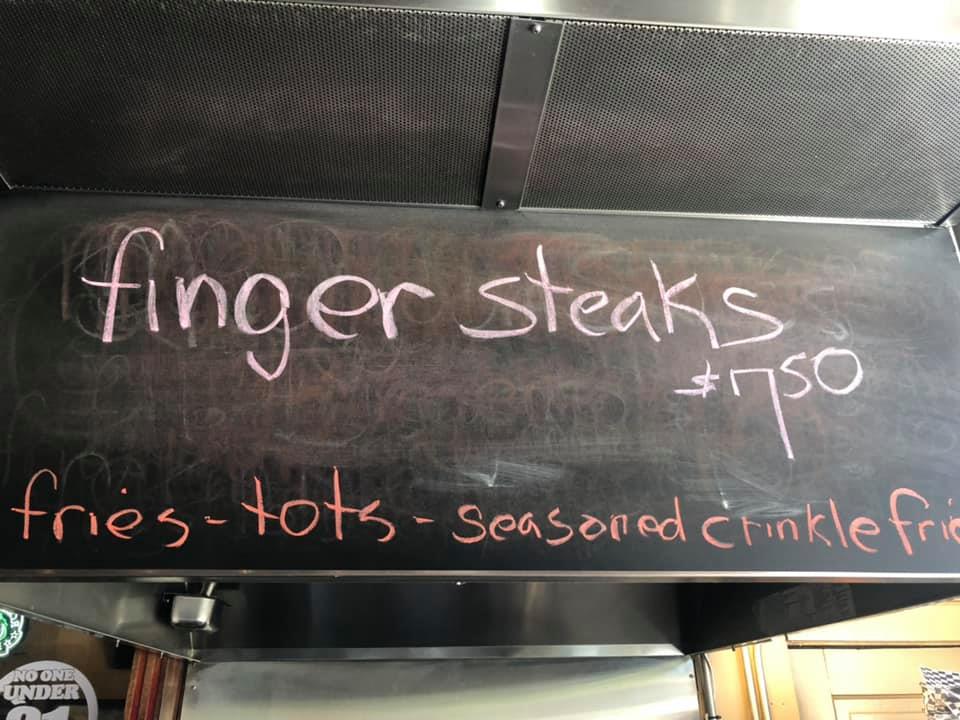 finger steaks
$750
fries - tots - seasoned crinkle frie
NO ONE
UNDER
21